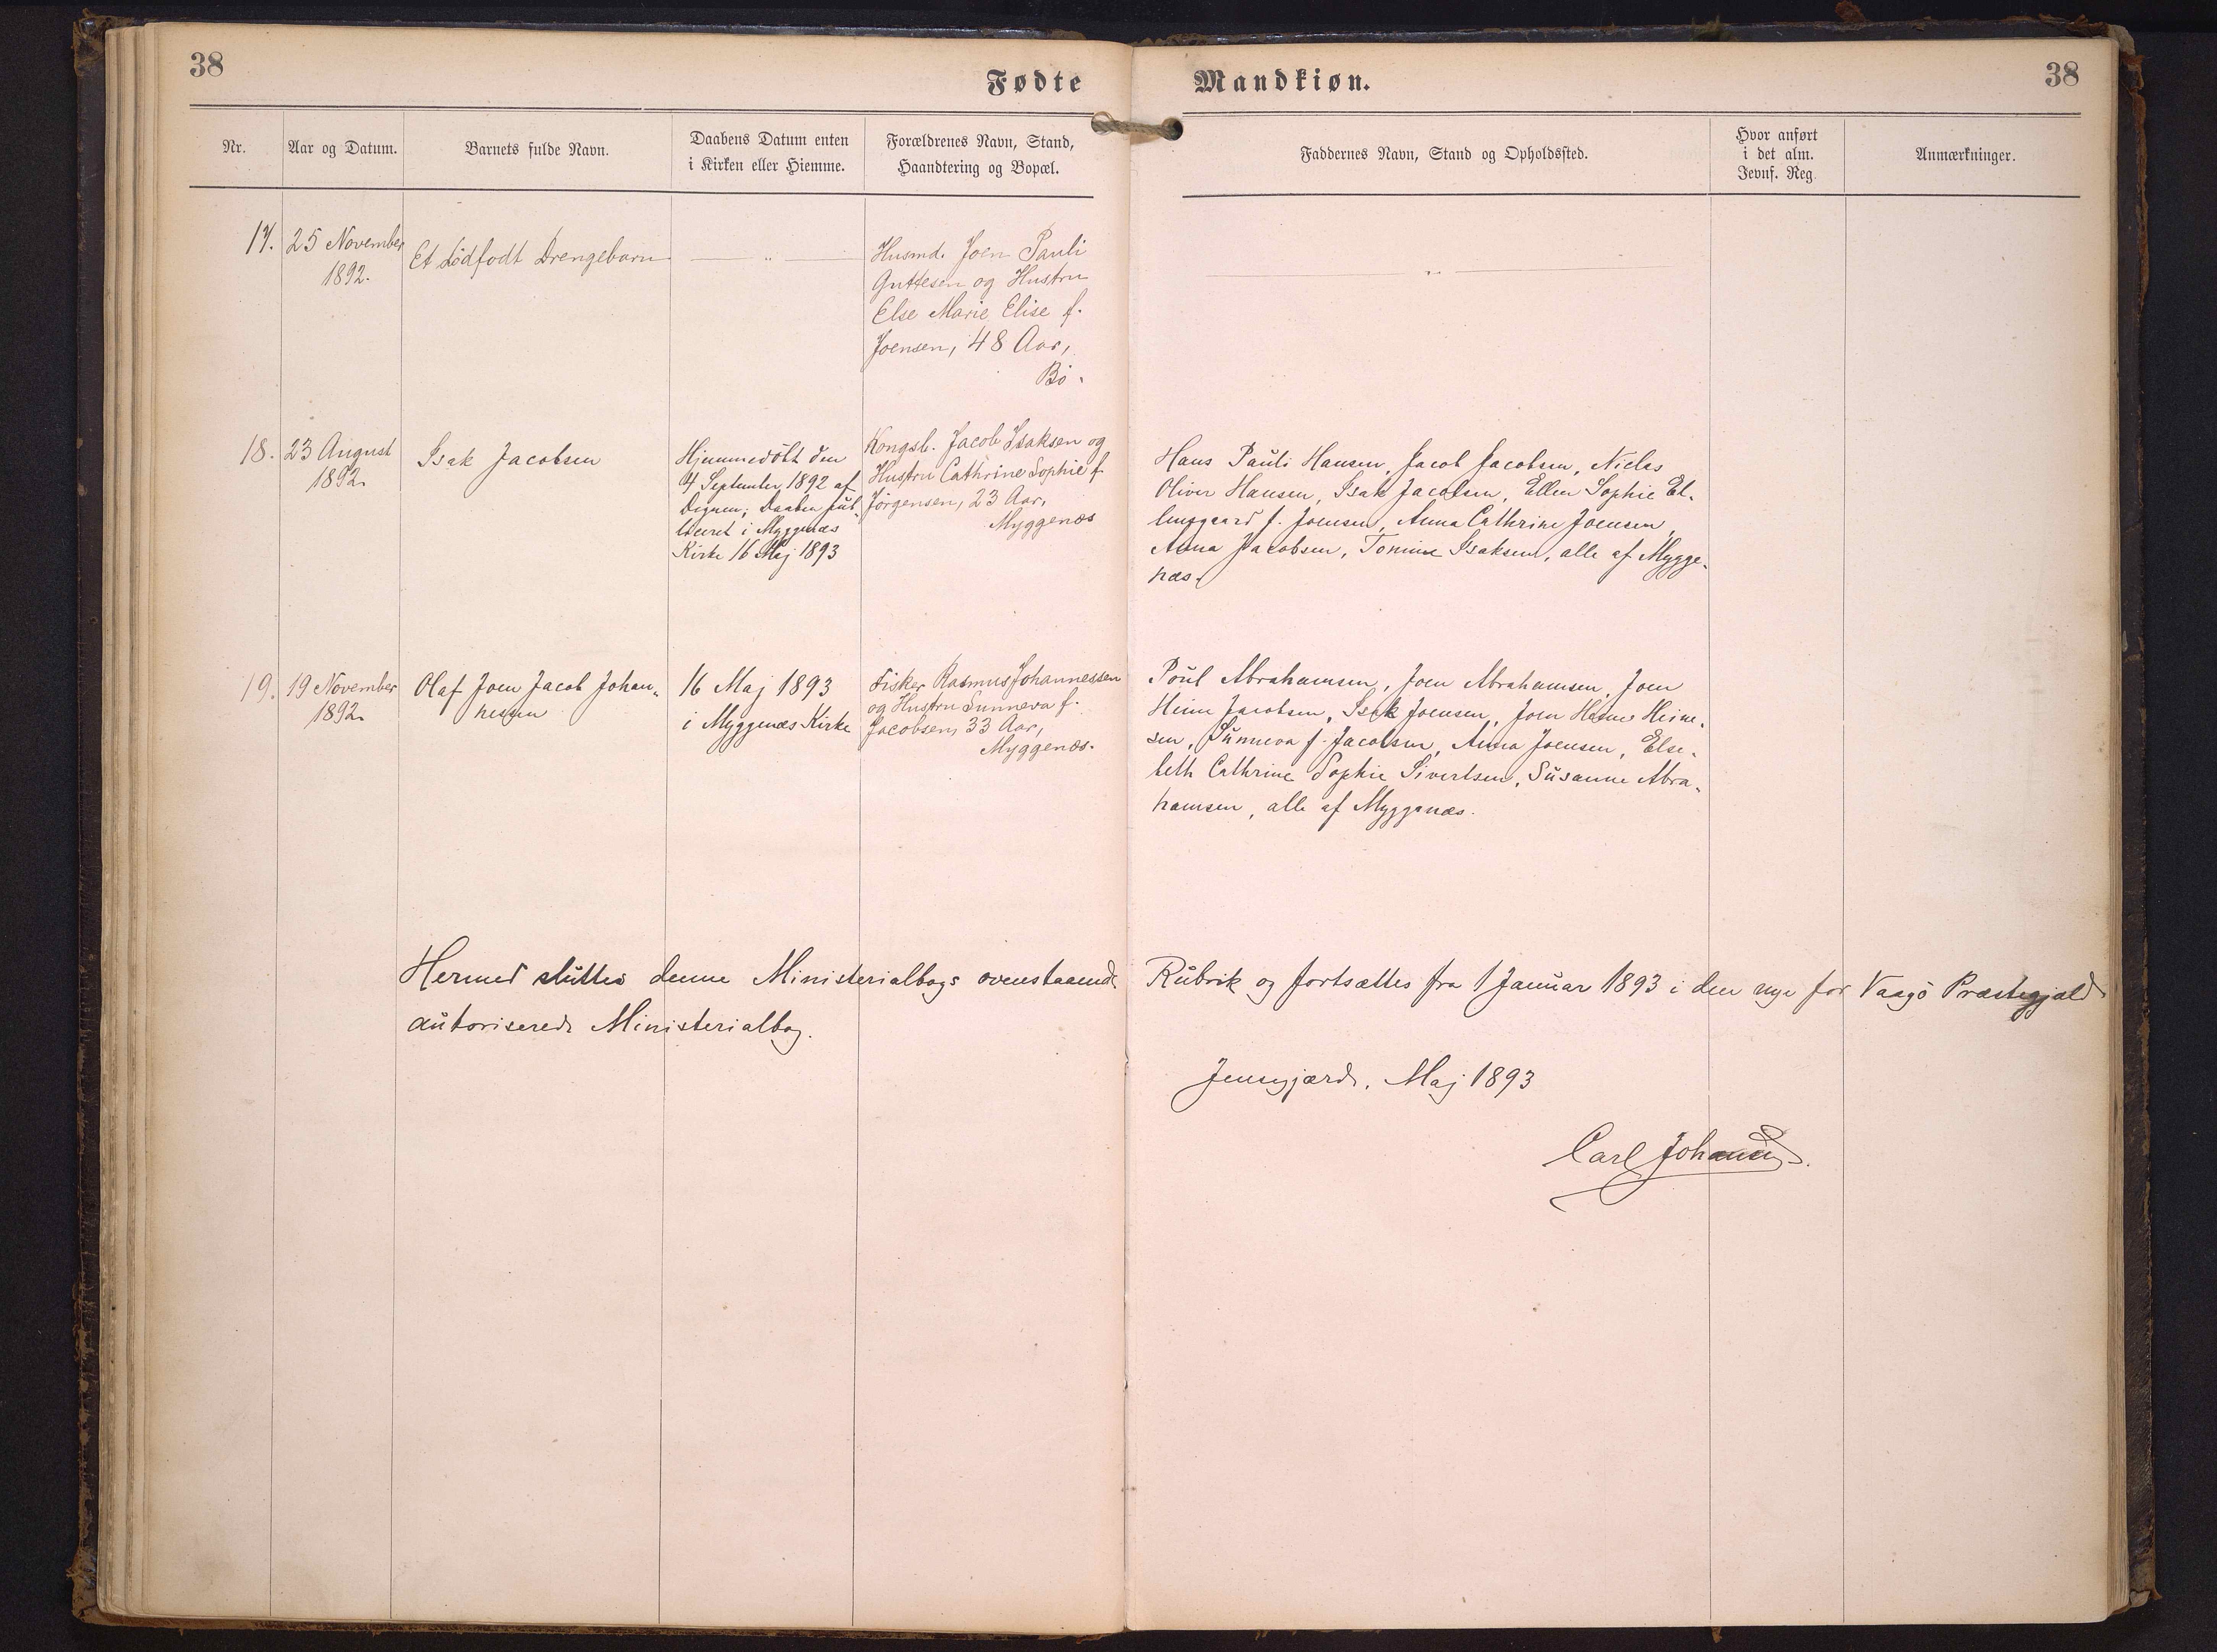 38
Fødte
Mandkiøn.
38
Nr.
Aar og Datum.
Barnets fulde Navn.
Daabens Datum enten
i Kirken eller Hiemme.
Forældrenes Navn, Stand,
Haandtering og Bopæl.
Faddernes Navn, Stand og Opholdssted.
Hvor anført
i det alm.
Jevnf. Reg.
Anmærkninger.
17.
25 November
1892.
Et dødfødt Drengebarn
— " —
Husmd. Joen Pauli
Guttesen og Hustru
Else Marie Elise f.
Joensen, 48 Aar,
Bö.
— " —
18.
23 August
1892.
Isak Jacobsen
Hjemmedöbt den
4 September 1892 af
Degnen; Daaben pub-
liceret i Myggenæs
Kirke 16 Maj 1893
Kongsb. Jacob Isaksen og
Hustru Cathrine Sophie f.
Jörgensen, 23 Aar,
Myggenæs
Hans Pauli Hansen, Jacob Jacobsen, Niclas
Oliver Hansen, Isak Jacobsen, Ellen Sophie El-
linggaard f. Joensen, Anna Cathrine Joensen,
Anna Jacobsen, Tomine Isaksen, alle af Mygge-
næs.
19.
19 November
1892.
Olaf Joen Jacob Johan-
nessen
16 Maj 1893
i Myggenæs Kirke
Fisker Rasmus Johannessen
og Hustru Sunneva f.
Jacobsen, 33 Aar,
Myggenæs.
Poul Abrahamsen, Joen Abrahamsen, Joen
Heine Jacobsen, Isak Joensen, Joen Heine-
sen, Sunneva f. Jacobsen, Anna Joensen, Else-
beth Cathrine Sophie Sivertsen, Susanne Abra-
hamsen, alle af Myggenæs.
Hermed sluttes denne Ministerialbogs ovenstaaende Rubrik og fortsættes fra 1 Januar 1893 i den nye for Vaagö Præstegjæld
autoriserede Ministerialbog.
Jensgjærde, Maj 1893
Carl Johansen.